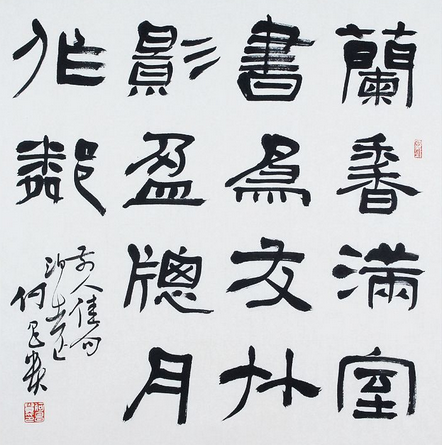 蘭香滿室
書為友竹
影盈牕月
作鄰
前人佳句
何